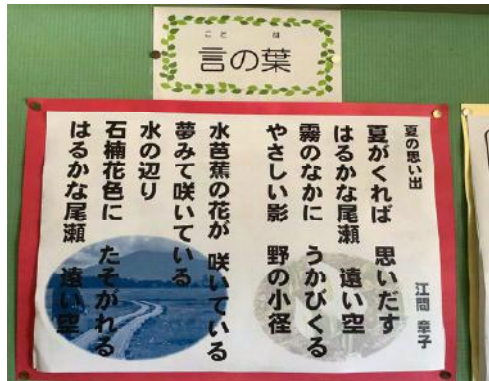 こと は
言の葉
夏の思い出
江間 章子
夏がくれば 思いだす
はるかな尾瀬 遠い空
霧のなかに うかびくる
やさしい影 野の小径
水芭蕉の花が 咲いている
夢みて咲いている
水の辺り
石楠花色に たそがれる
はるかな尾瀬 遠い空